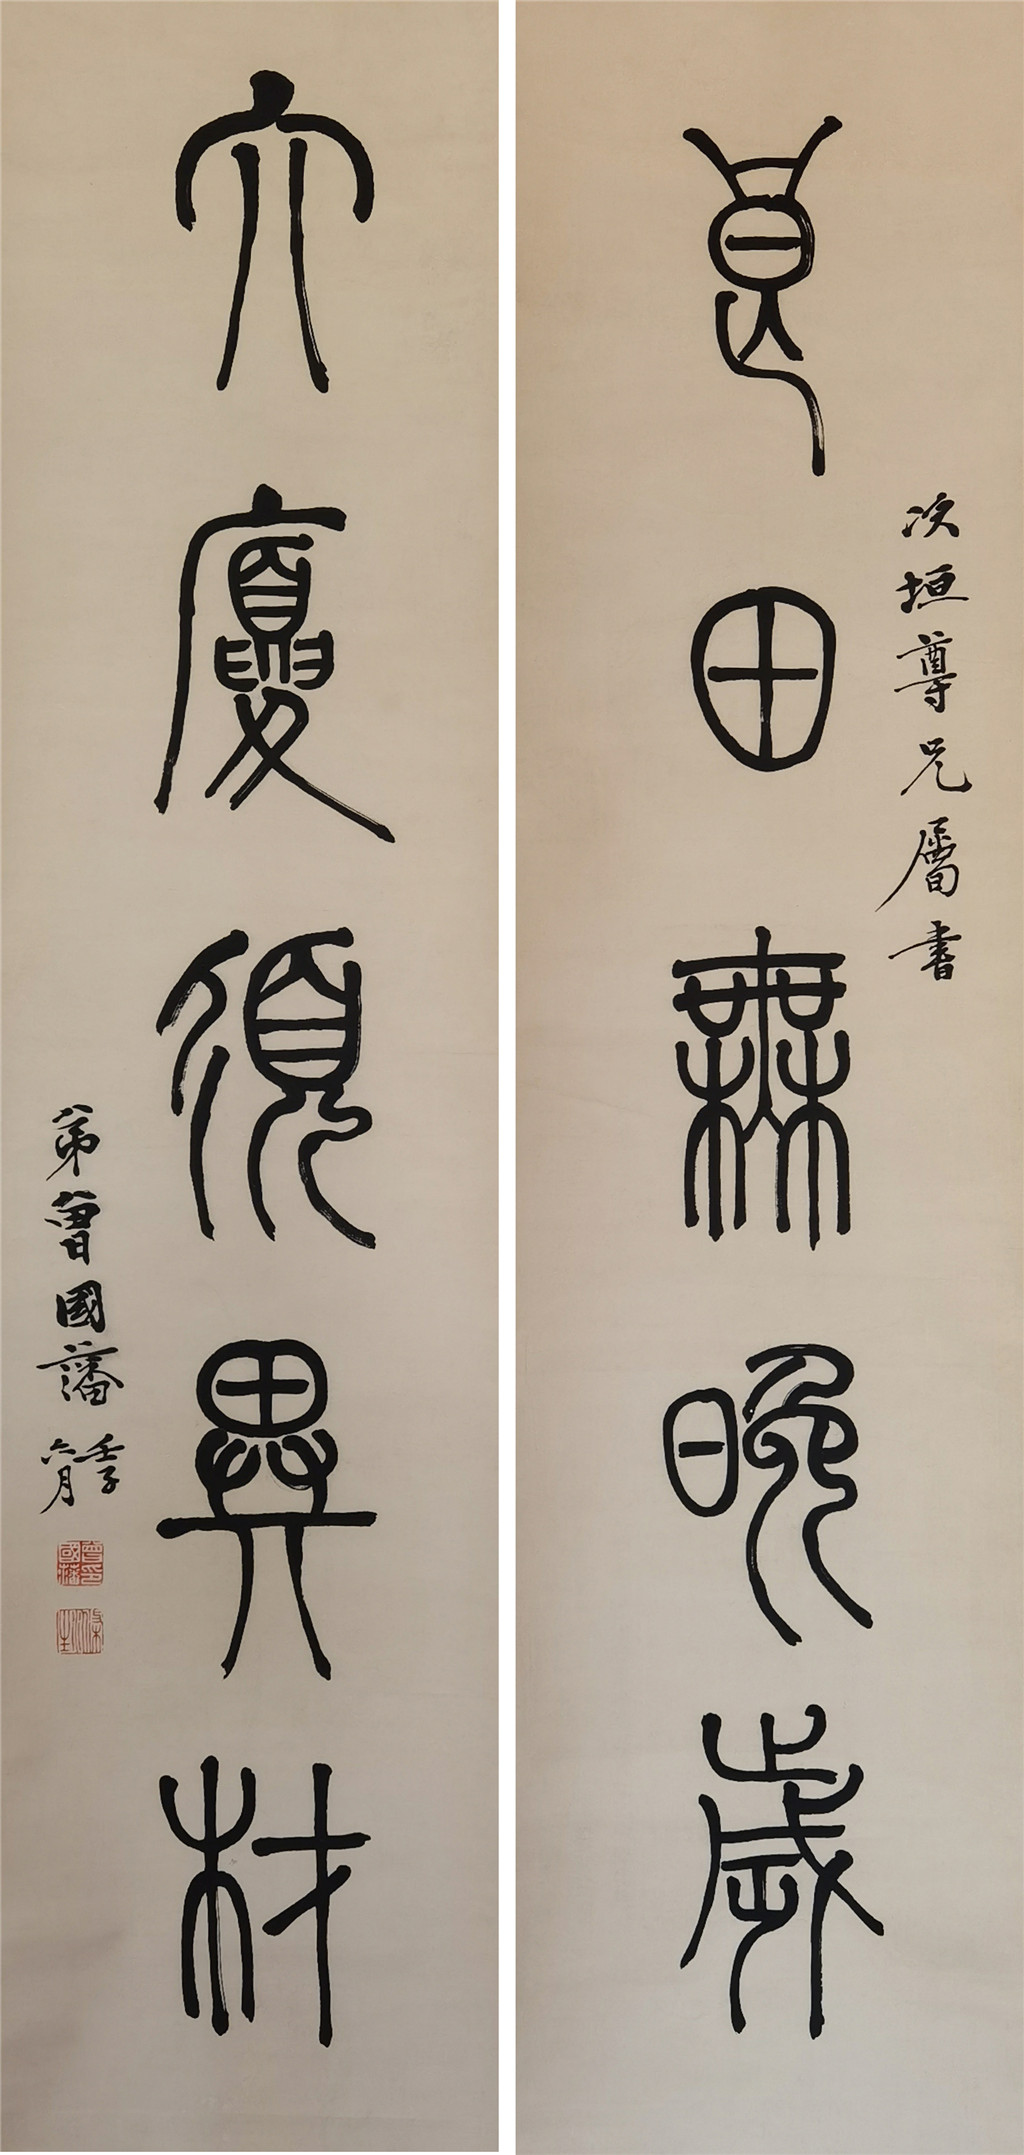 良田無晚歲
次垣尊兄屬書
大廈須異材
弟曾國藩
壬子
六月
曾國藩印
滌生